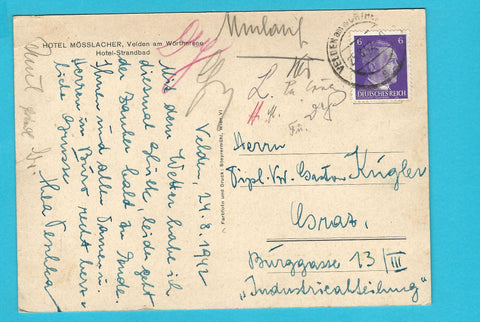 HOTEL MÖSSLACHER, Velden am Wörthersee
Hotel-Strandbad
Umlauf
Velden, 24.8.1942
Mit dem Wetter habe ich
diesmal Glück, leider geht
der Zauber bald zu Ende.
Ihnen und allen Damen u.
Herren im Büro recht herz-
liche Grüsse
Hea
Farbfoto und Druck: Wien, VI
VELDEN am WÖRTHERSEE
6 6
DEUTSCHES REICH
Herrn
Dipl. Vw. Gaston Kügler
Graz,
Burggasse 13/III
„Industrieabteilung"